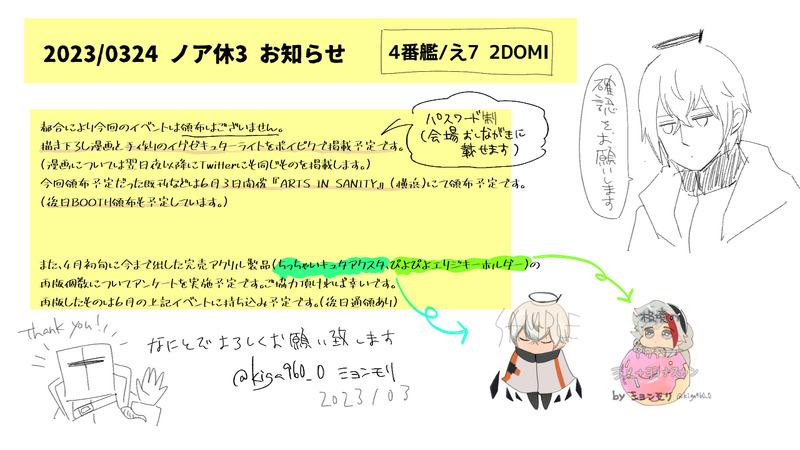 2023/0324 ノア休3 お知らせ
4番艦/え7 2DOMI
パスワード制
(会場おしながきに
載せます)
確認をお願いします
都合により今回のイベントは頒布はございません。
描き下ろし漫画と手作りのイグゼキュターライトをポイピクで掲載予定です。
(漫画については翌日夜以降にTwitterにも同じものを掲載します。)
今回頒布予定だった既刊などは6月3日開催『ARTS IN SANITY』(横浜)にて頒布予定です。
(後日BOOTH頒布も予定しています。)
また、4月初旬に今まで出した完売アクリル製品(ちっちゃいキュタアクスタ、ぴよぴよエリジキーホルダー)の
再販個数についてアンケートを実施予定です。ご協力頂ければ幸いです。
再販したものは6月の上記イベントに持ち込み予定です。(後日通頒あり)
thank you!
なにとぞよろしくお願い致します
@kiga960_0 ミヨンモリ
2023/03
by ミヨンモリ @kiga960_0